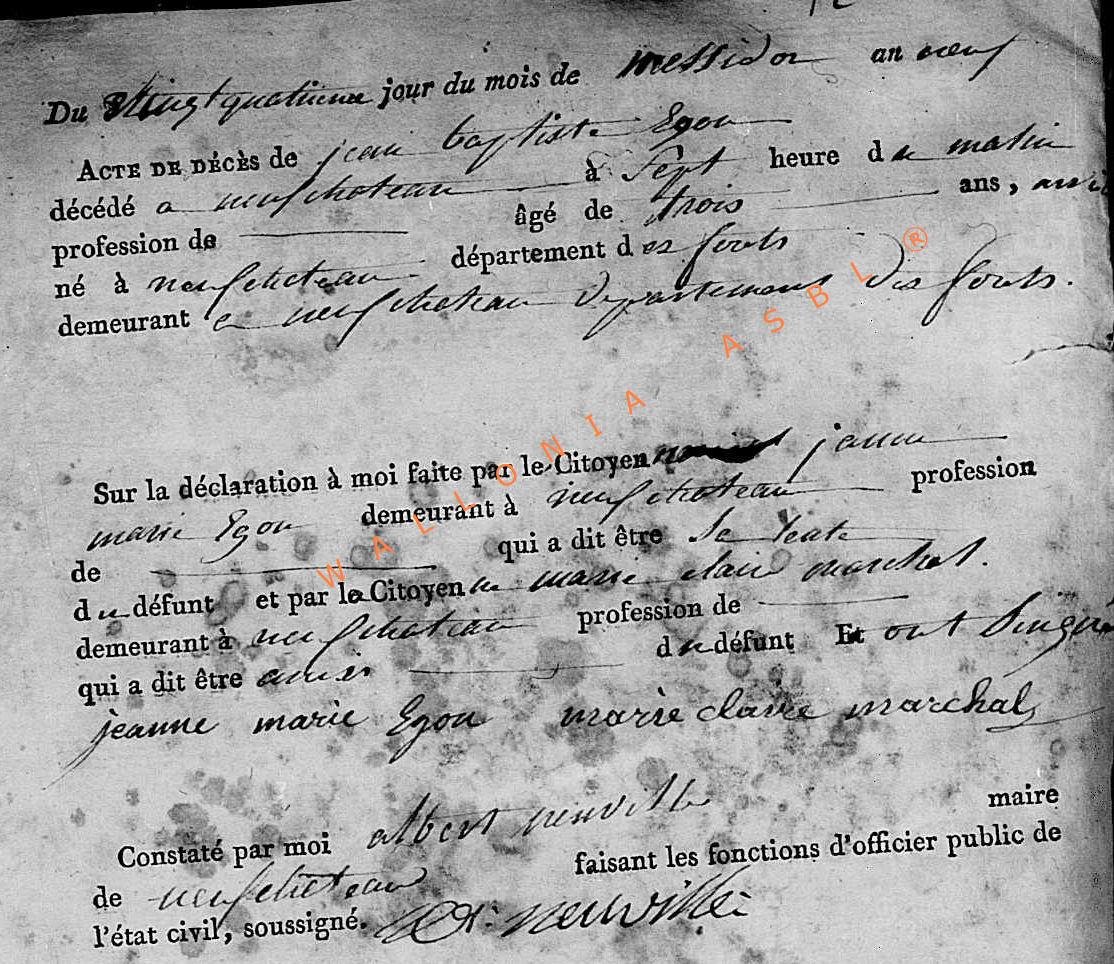 Du Vingtquatrieme jour du mois de messidor an neuf
ACTE DE DÉCÈS de jean baptiste Egon
décédé a neufchateau à Sept heure du matin
profession de âgé de trois ans,
né à neufchateau département des forets
demeurant a neufchateau departement des forets.
Sur la déclaration à moi faite par le Citoyen janne
marie Egon demeurant à neufchateau profession
de qui a dit être
du défunt et par la Citoyenne marie claire marchal.
demeurant à neufchateau profession de
qui a dit être amis du défunt Et ont Singné
jeanne marie Egon marie claire marchal
Constaté par moi albert neuville maire
de neufchateau faisant les fonctions d'officier public de
l'état civil, soussigné. neuville
WALLONIA ASBL ®